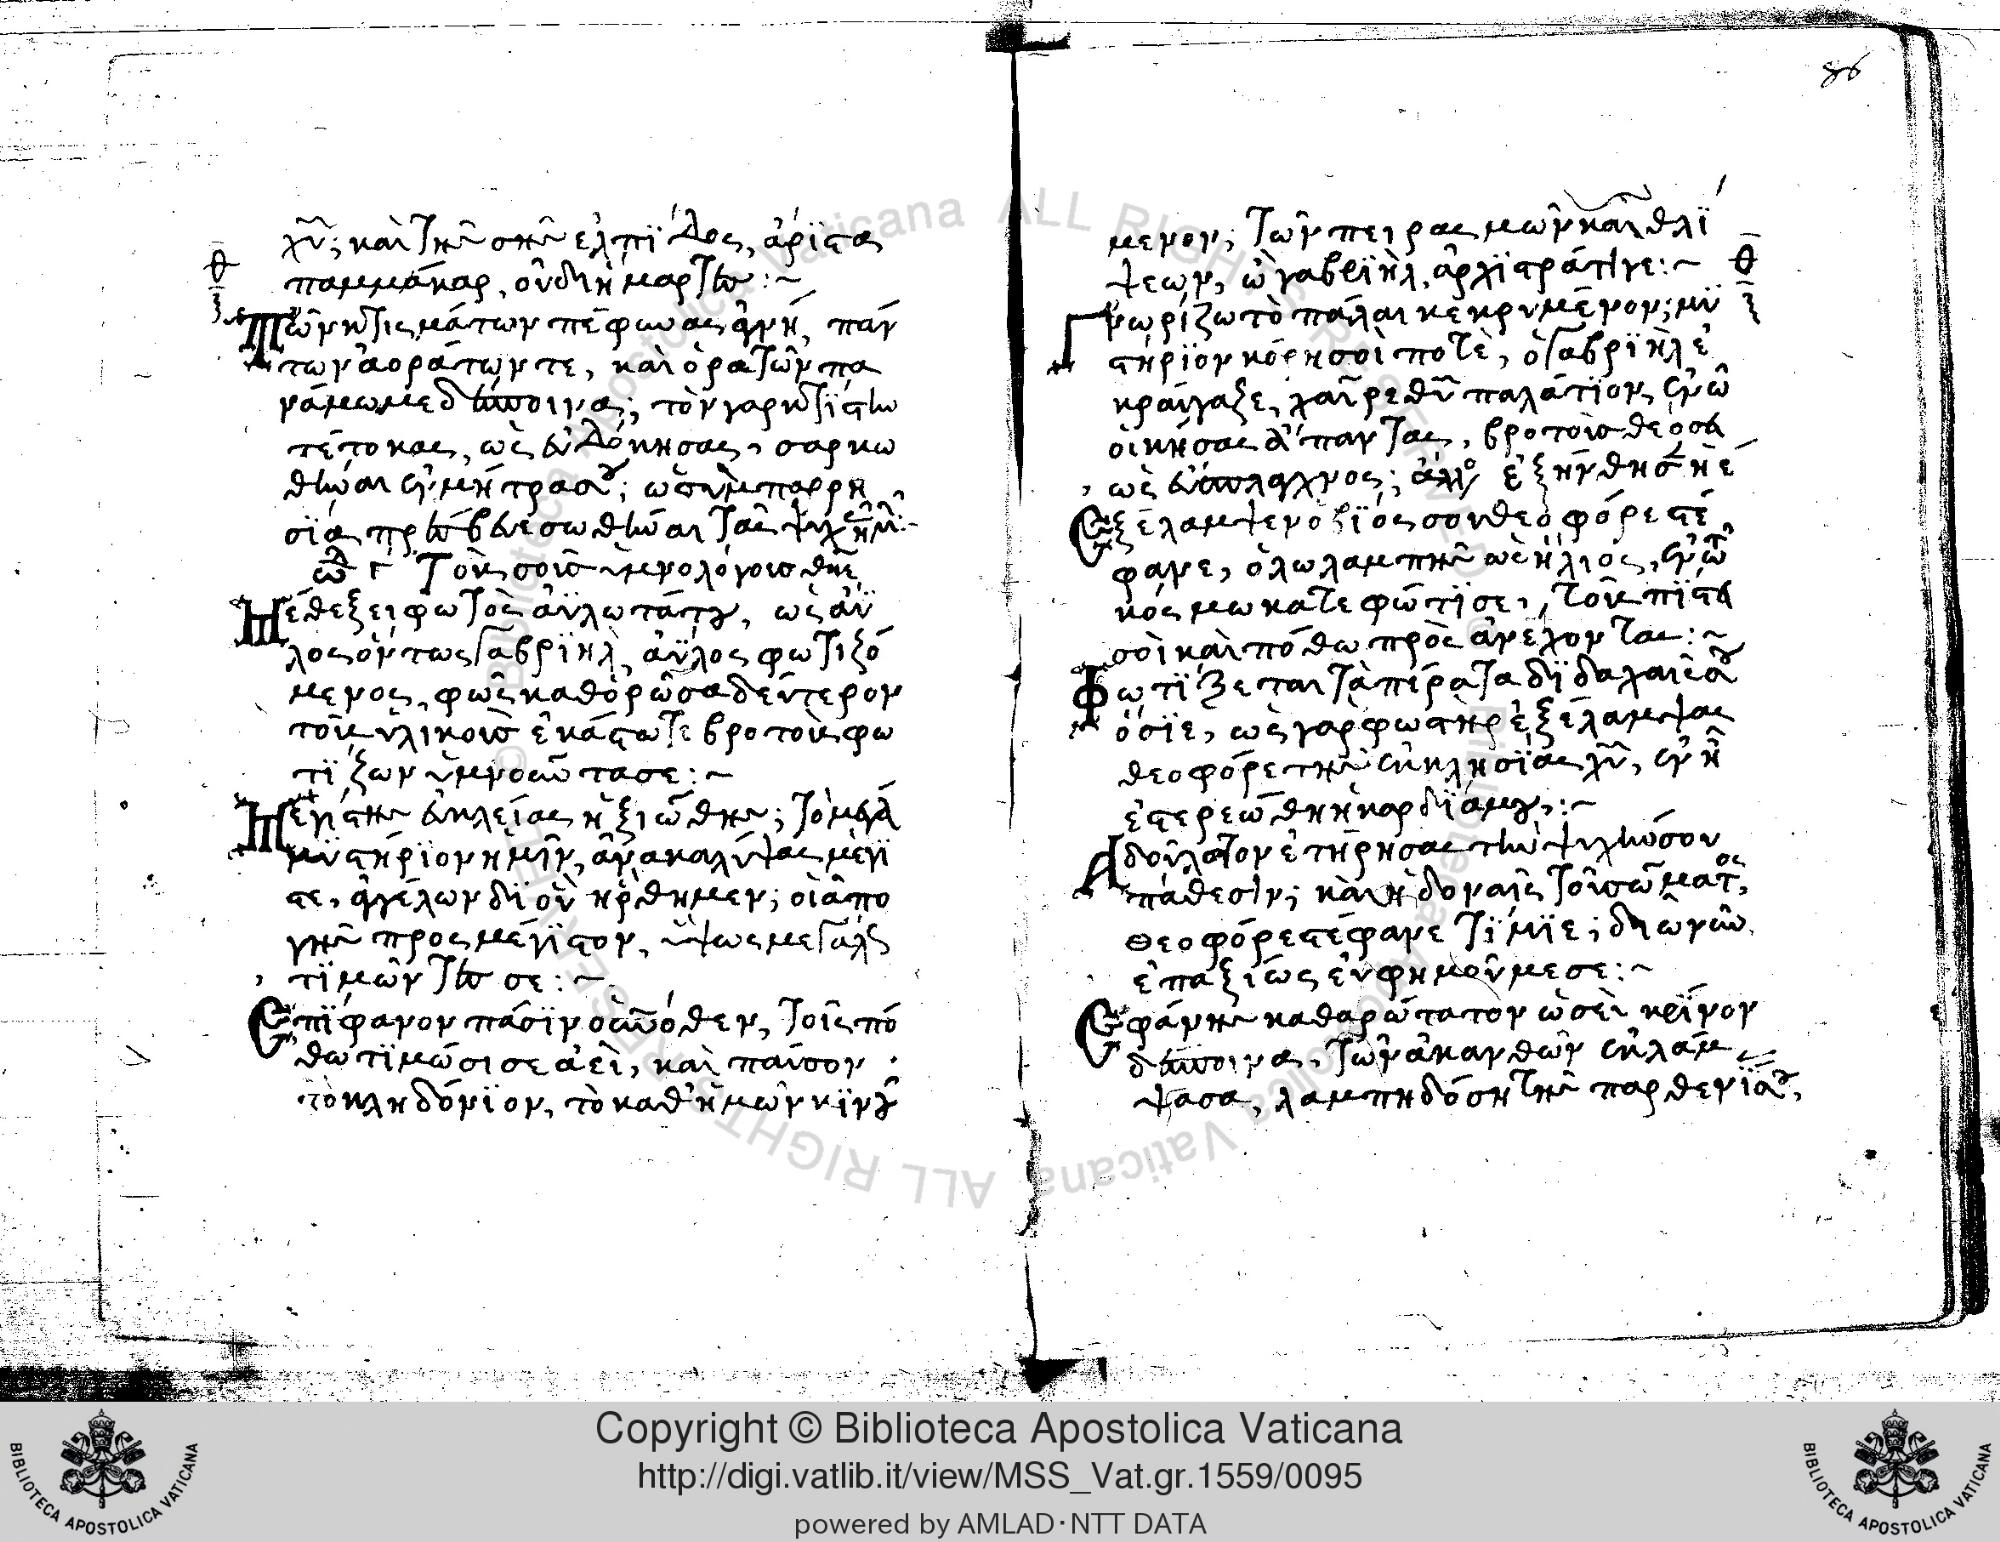 χῦ; καὶ τῆς σῆς ἐλπίδος, ἀρίστα
παμμάκαρ, οὐ διήμαρτον :~
Τῶν κτισμάτων πέφυνας ἁγνή, πάν
των ἀοράτων τε, καὶ ὁρατῶν πα
νάμωμε δέσποινα; τὸν γὰρ κτίστην
τέτοκας, ὡς εὐδόκησας, σαρκω
θῆναι ἐν μήτρα σου; ὦ σὺν παρρη
σία πρέσβευε σωθῆναι τὰς ψυχὰς ἡμῶν :~
ὠδ γ Τοὺς σοὺς ὑμνολόγους θκε
Μεθέξει φωτὸς ἀϋλωτάτου, ὡς ἄϋ
λος ὄντως Γαβριὴλ, ἄϋλος φωτιζό
μενος, φῶς καθορῶσα δεύτερον
τοὺς ὑλικοὺς ἑκάστοτε βροτοὺς φω
τίζων ὑμνοῦντας σε :~
Μεγίστης εὐκλείας ἠξιώθης; τὸ μέγα
μυστήριον ἡμῖν, ἀνακαλύψας μέγι
στε, ἀγγέλων δι' οὗ ἤρθημεν; οἱ ἀπο
γῆς πρὸς μέγιστον, ὕψος μεγάλως
τιμῶν τὸ σε :~
Ἐπίφανον πᾶσιν οὐρανόθεν, τοῖς πό
θω τιμῶσι σε ἀεὶ, καὶ παῦσον
τὸ κλυδώνιον, τὸ καθ' ἡμῶν κινού
86
μενον; τῶν πειρασμῶν καὶ θλί
ψεων, ὦ γαβριὴλ, ἀρχιστράτηγε :~
Γνωρίζω τὸ πάλαι κεκρυμένον; μυ
στήριον κόρη σοὶ ποτὲ, ὁ Γαβριὴλ ἐ
κραύγαζε, χαῖρε θῦ παλάτιον, ἐν ᾧ
οἰκήσας ἅπαντας, βροτοὺς θεώσει
ὡς εὔσπλαχνος; ἄλλος ἐξηνθησεν ἡ ἐ
Ἐξέλαμψεν ὁ βίος σου θεοφόρε στέ
φανε, ὅλω λαμπρὸς ὡς ἥλιος, ἐν ᾧ
κόσμω κατεφώτισε, τοὺς πίστει
σοὶ καὶ πόθω προσανέχοντας :~
Φωτίζεται τὰ πέρατα διδαχαῖς σου
ὅσιε, ὡς γὰρ φωστὴρ ἐξέλαμψας
θεοφόρε τῆς ἐκκλησίας χῦ, ἐν ᾗ
ἐστερεώθη ἡ καρδία μου :~
Ἀδούλωτον ἐτήρησας τὴν ψυχήν σου
πάθεσιν; καὶ ἡδοναῖς τοῦ σώματος,
Θεοφόρε στέφανε τίμιε; διὸ νῦν
ἐπαξίως εὐφημοῦμε σε :~
Ἐφάνης καθαρώτατον ὡσεὶ κρίνον
δέσποινα, τῶν ἀκανθῶν ἐκλάμ
ψασα, λαμπηδόσι τῆς παρθενίας,
Copyright © Biblioteca Apostolica Vaticana
http://digi.vatlib.it/view/MSS_Vat.gr.1559/0095
powered by AMLAD·NTT DATA